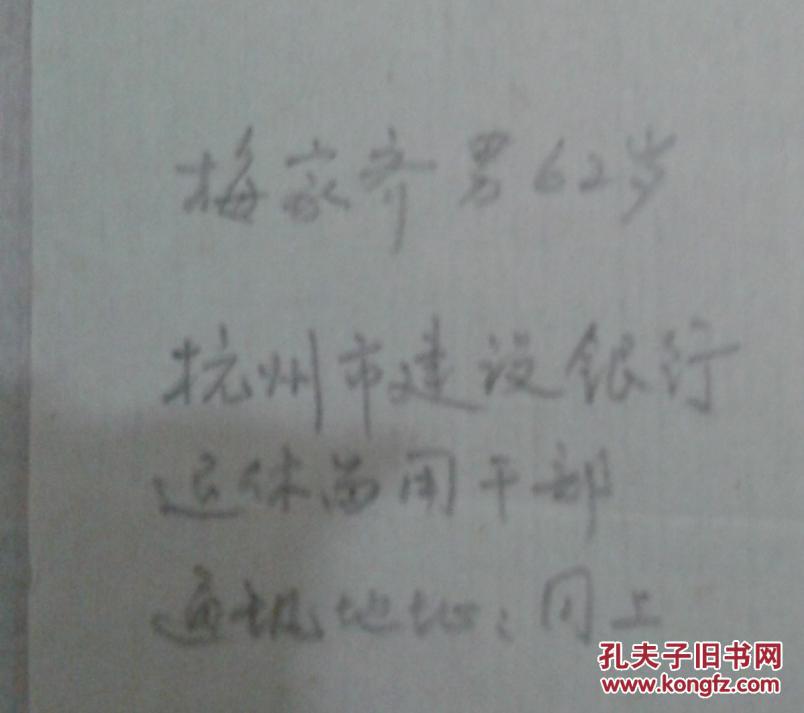 梅家齐 男 62岁
杭州市建设银行
退休留用干部
通讯地址：同上
孔夫子旧书网
www.kongfz.com